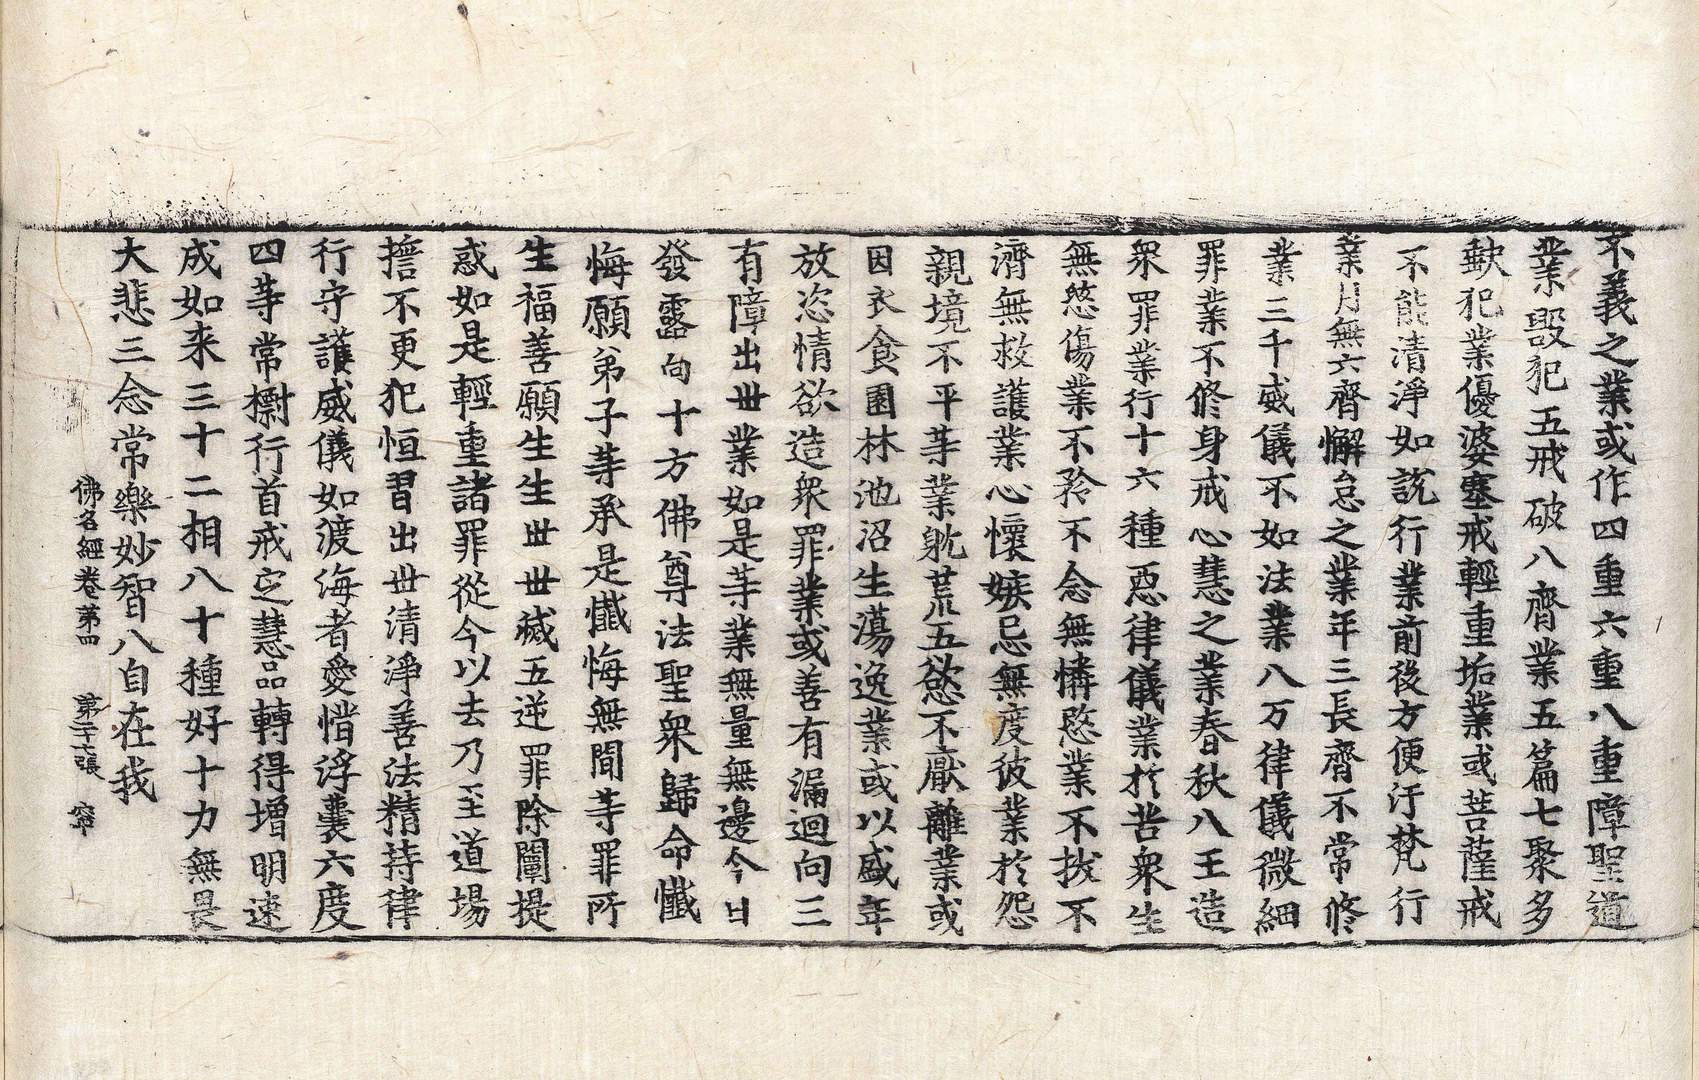 不義之業或作四重六重八重障聖道
業毀犯五戒破八齊業五篇七聚多
缺犯業優婆塞戒輕重垢業或菩薩戒
不能清淨如說行業前後方便汙梵行
業月無六齊懈怠之業年三長齊不常修
業三千威儀不如法業八万律儀微細
罪業不修身戒心慧之業春秋八王造
衆罪業行十六種惡律儀業扵苦衆生
無愍傷業不矜不念無憐愍業不拔不
濟無救護業心懷嫉忌無度彼業扵怨
親境不平䓁業躭荒五慾不猒離業或
因衣食園林池沼生蕩逸業或以盛年
放恣情欲造衆罪業或善有漏迴向三
有障出丗業如是䓁業無量無邊今日
發露向十方佛尊法聖衆歸命懺
悔願弟子䓁承是懺悔無間䓁罪所
生福善願生生丗丗滅五逆罪除闡提
惑如是輕重諸罪從今以去乃至道場
誓不更犯恒習出丗清淨善法精持律
行守護威儀如渡海者愛惜浮囊六度
四䓁常㯳行首戒定慧品轉得增明速
成如来三十二相八十種好十力無畏
大悲三念常樂妙智八自在我
佛名經卷第四　第二十六張